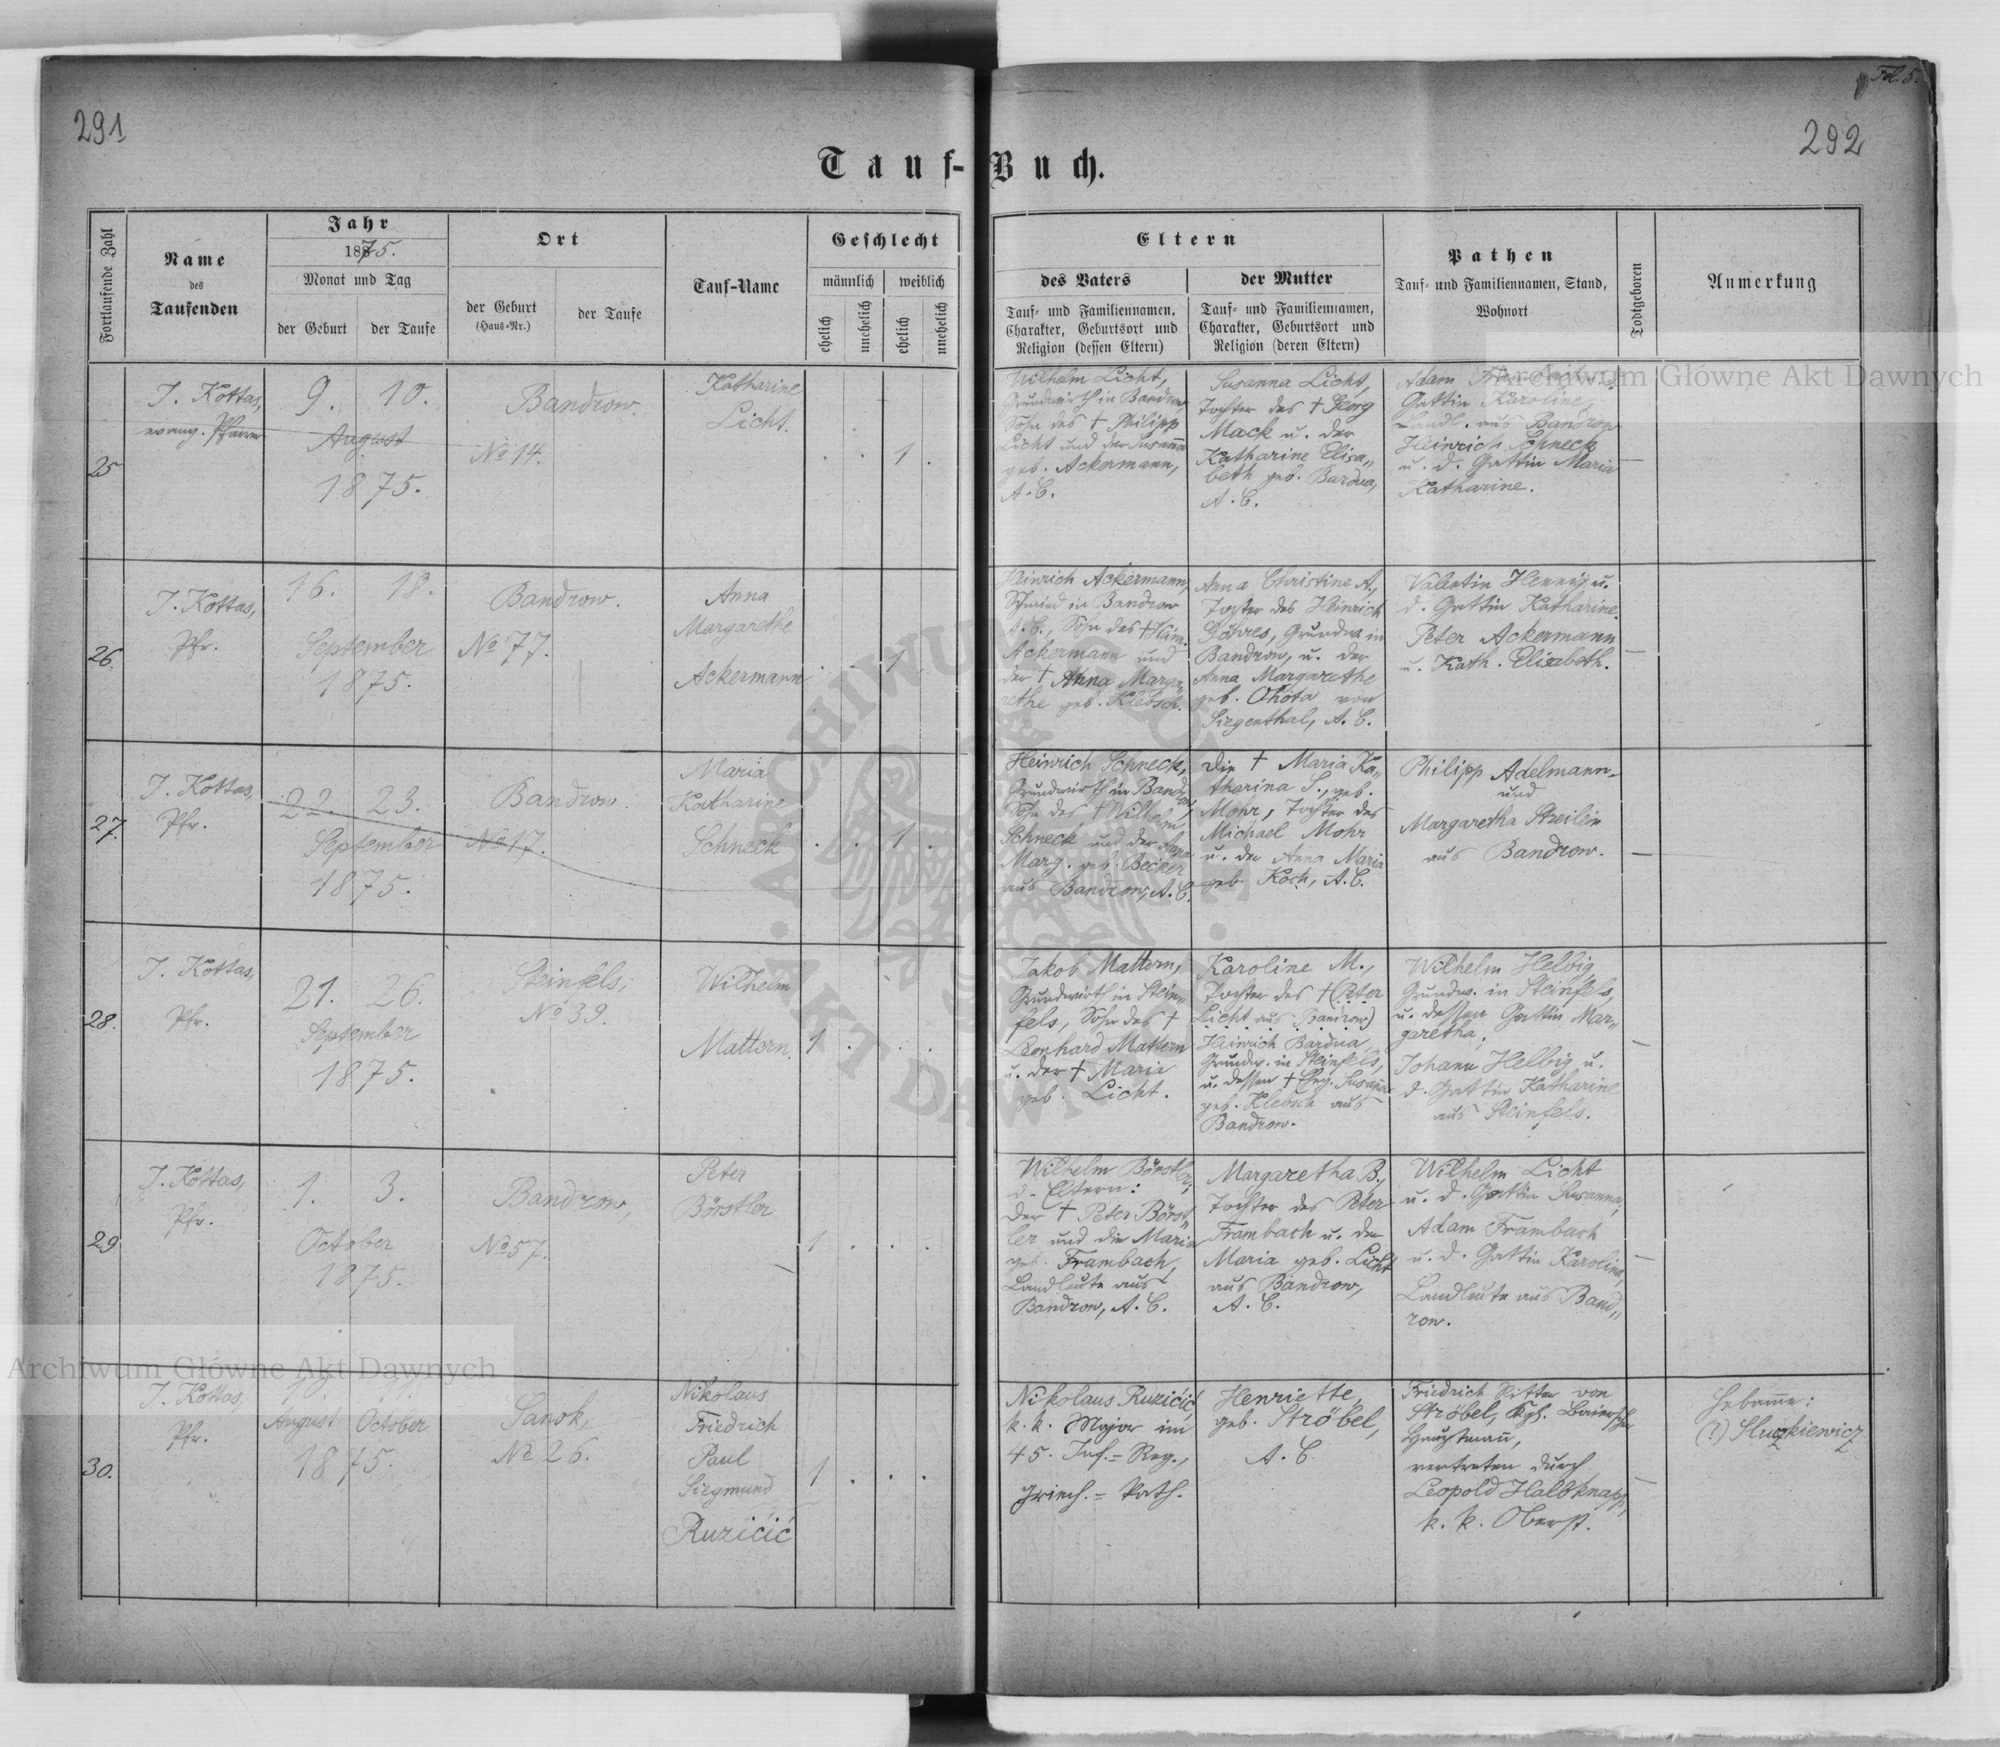 291
292
Fol. 5.
Tauf-Buch.
Fortlaufende Zahl
Name
des
Taufenden
Jahr
1875.
Monat und Tag
der Geburt
der Taufe
Ort
der Geburt
(Haus-Nr.)
der Taufe
Tauf-Name
Geschlecht
männlich
weiblich
ehelich
unehelich
ehelich
unehelich
Eltern
des Vaters
Tauf- und Familiennamen,
Charakter, Geburtsort und
Religion (dessen Eltern)
der Mutter
Tauf- und Familiennamen,
Charakter, Geburtsort und
Religion (deren Eltern)
Pathen
Tauf- und Familiennamen, Stand,
Wohnort
Todtgeboren
Anmerkung
25
J. Kottas,
evang. Pfarrer
9. 10.
August
1875.
Bandrow.
No 14.
Katharine
Licht.
. . 1 .
Wilhelm Licht,
Grundwirth in Bandrow,
Sohn des † Philipp
Licht und der Susanna
geb. Ackermann,
A. C.
Susanna Licht,
Tochter des † Georg
Mack u. der
Katharine Elisa„
beth geb. Bardua,
A. C.
Adam
Gattin Karoline,
Landl. aus Bandrow
Heinrich Schneck
u. d. Gattin Maria
Katharine.
—
26.
J. Kottas,
Pfr.
16. 18.
September
1875.
Bandrow.
No 77.
Anna
Margarethe
Ackermann
. . 1 .
Heinrich Ackermann,
Schmied in Bandrow
A. C., Sohn des † Heinr.
Ackermann und
der † Anna Marga„
rethe geb. Klebsch.
Anna Christine A.,
Tochter des Heinrich
Göhres, Grundw. in
Bandrow, u. der
Anna Margarethe
geb. Ohota von
Siegenthal, A. C.
Valentin Hennig u.
d. Gattin Katharine.
Peter Ackermann
u. Kath. Elisabeth.
—
27.
J. Kottas,
Pfr.
22. 23.
September
1875.
Bandrow.
No 17.
Maria
Katharine
Schneck
. . 1 .
Heinrich Schneck,
Grundwirth in Band„
row,
Sohn des † Wilhelm
Schneck und der Anna
Marg. geb. Becker
aus Bandrow, A. C.
Die † Maria Ka„
tharina S., geb.
Mohr, Tochter des
Michael Mohr
u. der Anna Maria
geb. Koch, A. C.
Philipp Adelmann
und
Margaretha
aus Bandrow.
—
28.
J. Kottas,
Pfr.
21. 26.
September
1875.
Steinfels,
No 39.
Wilhelm
Mattern.
1 . . .
Jakob Mattern,
Grundwirth in Stein„
fels, Sohn des †
Leonhard Mattern
u. der † Maria
geb. Licht.
Karoline M.,
Tochter des † (Peter
Licht aus Bandrow)
Heinrich Bardua
Grundw. in Steinfels,
u. dessen † Eheg. Susanna
geb. Klebsch aus
Bandrow.
Wilhelm Helbig,
Grundw. in Steinfels,
u. dessen Gattin Mar„
garetha.
Johann Helbig u.
d. Gattin Katharine
aus Steinfels.
—
29
J. Kottas,
Pfr.
1. 3.
October
1875.
Bandrow,
No 57.
Peter
Börstler
1 . . .
Wilhelm Börstler,
d. Eltern:
der † Peter Börst„
ler und die Maria
geb. Frambach,
Landleute aus
Bandrow, A. C.
Margaretha B.,
Tochter des Peter
Frambach u. der
Maria geb. Licht
aus Bandrow,
A. C.
Wilhelm Licht
u. d. Gattin Susanna,
Adam Frambach
u. d. Gattin Karolina,
Landleute aus Band„
row.
—
30.
J. Kottas,
Pfr.
August October
1875.
Sanok,
No 26.
Nikolaus
Friedrich
Paul
Siegmund
Ruzičić
1 . . .
Nikolaus Ruzičić
k. k. Major im
45. Inf.-Reg.,
Griech.-Kath.
Henriette,
geb. Ströbel,
A. C.
Friedrich Ritter von
Ströbel, Kgl. Baierischer
Hauptmann,
vertreten durch
Leopold Halbknapp,
k. k. Oberst.
—
Hebamme:
(?) Sluzkiewicz
Archiwum Główne Akt Dawnych
Archiwum Główne Akt Dawnych